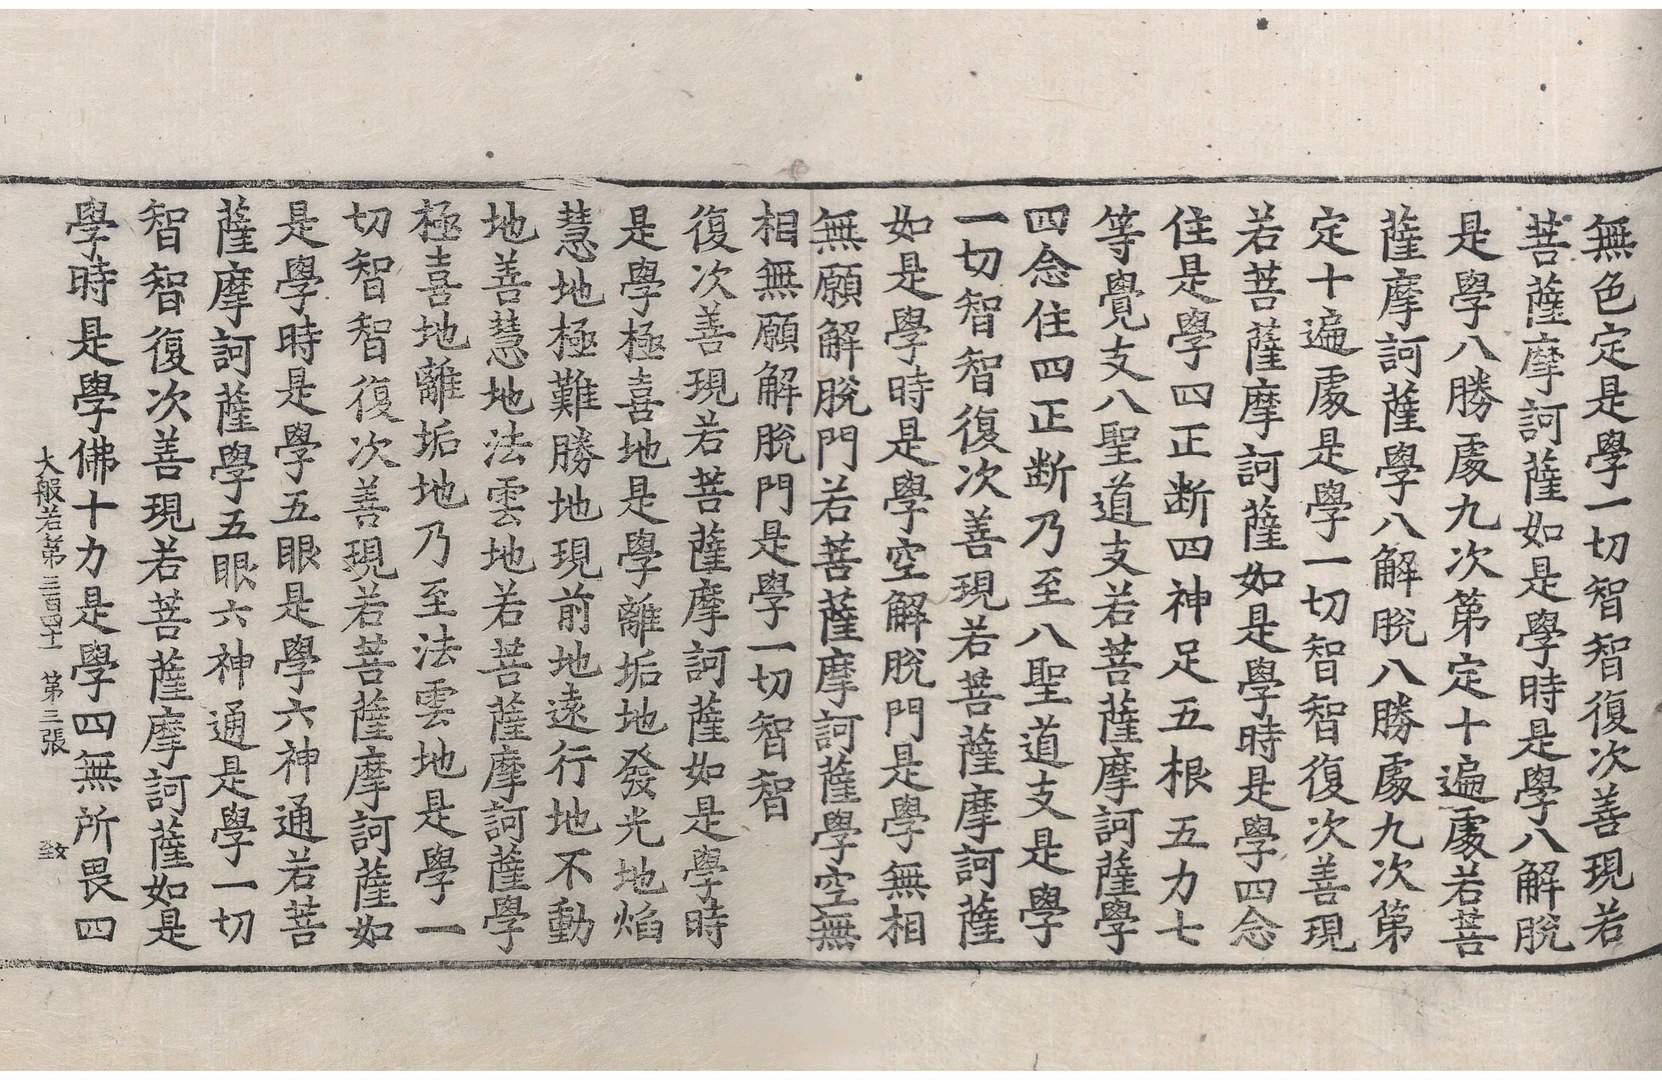 無色定是學一切智智復次善現若
菩薩摩訶薩如是學時是學八解脫
是學八勝處九次第定十遍處若菩
薩摩訶薩學八解脫八勝處九次第
定十遍處是學一切智智復次善現
若菩薩摩訶薩如是學時是學四念
住是學四正断四神足五根五力七
等覺支八聖道支若菩薩摩訶薩學
四念住四正断乃至八聖道支是學
一切智智復次善現若菩薩摩訶薩
如是學時是學空解脫門是學無相
無願解脫門若菩薩摩訶薩學空無
相無願解脫門是學一切智智
復次善現若菩薩摩訶薩如是學時
是學極喜地是學離垢地發光地焰
慧地極難勝地現前地遠行地不動
地善慧地法雲地若菩薩摩訶薩學
極喜地離垢地乃至法雲地是學一
切智智復次善現若菩薩摩訶薩如
是學時是學五眼是學六神通若菩
薩摩訶薩學五眼六神通是學一切
智智復次善現若菩薩摩訶薩如是
學時是學佛十力是學四無所畏四
大般若第三百四十一 第三張 致